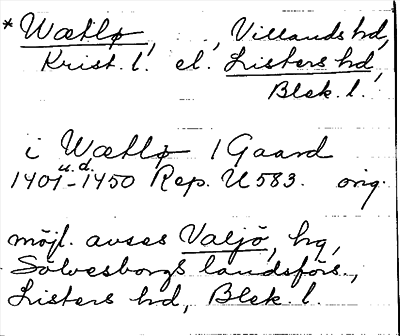 * Wætlø, , Villands hd,
Krist. l. el. Listers hd,
Blek. l.
i Wætlø 1 Gaard
u.d.
1401-1450 Rep. U 583. orig.
möjl. avses Valjö, hg,
Sölvesborgs landsförs.,
Listers hd, Blek. l.